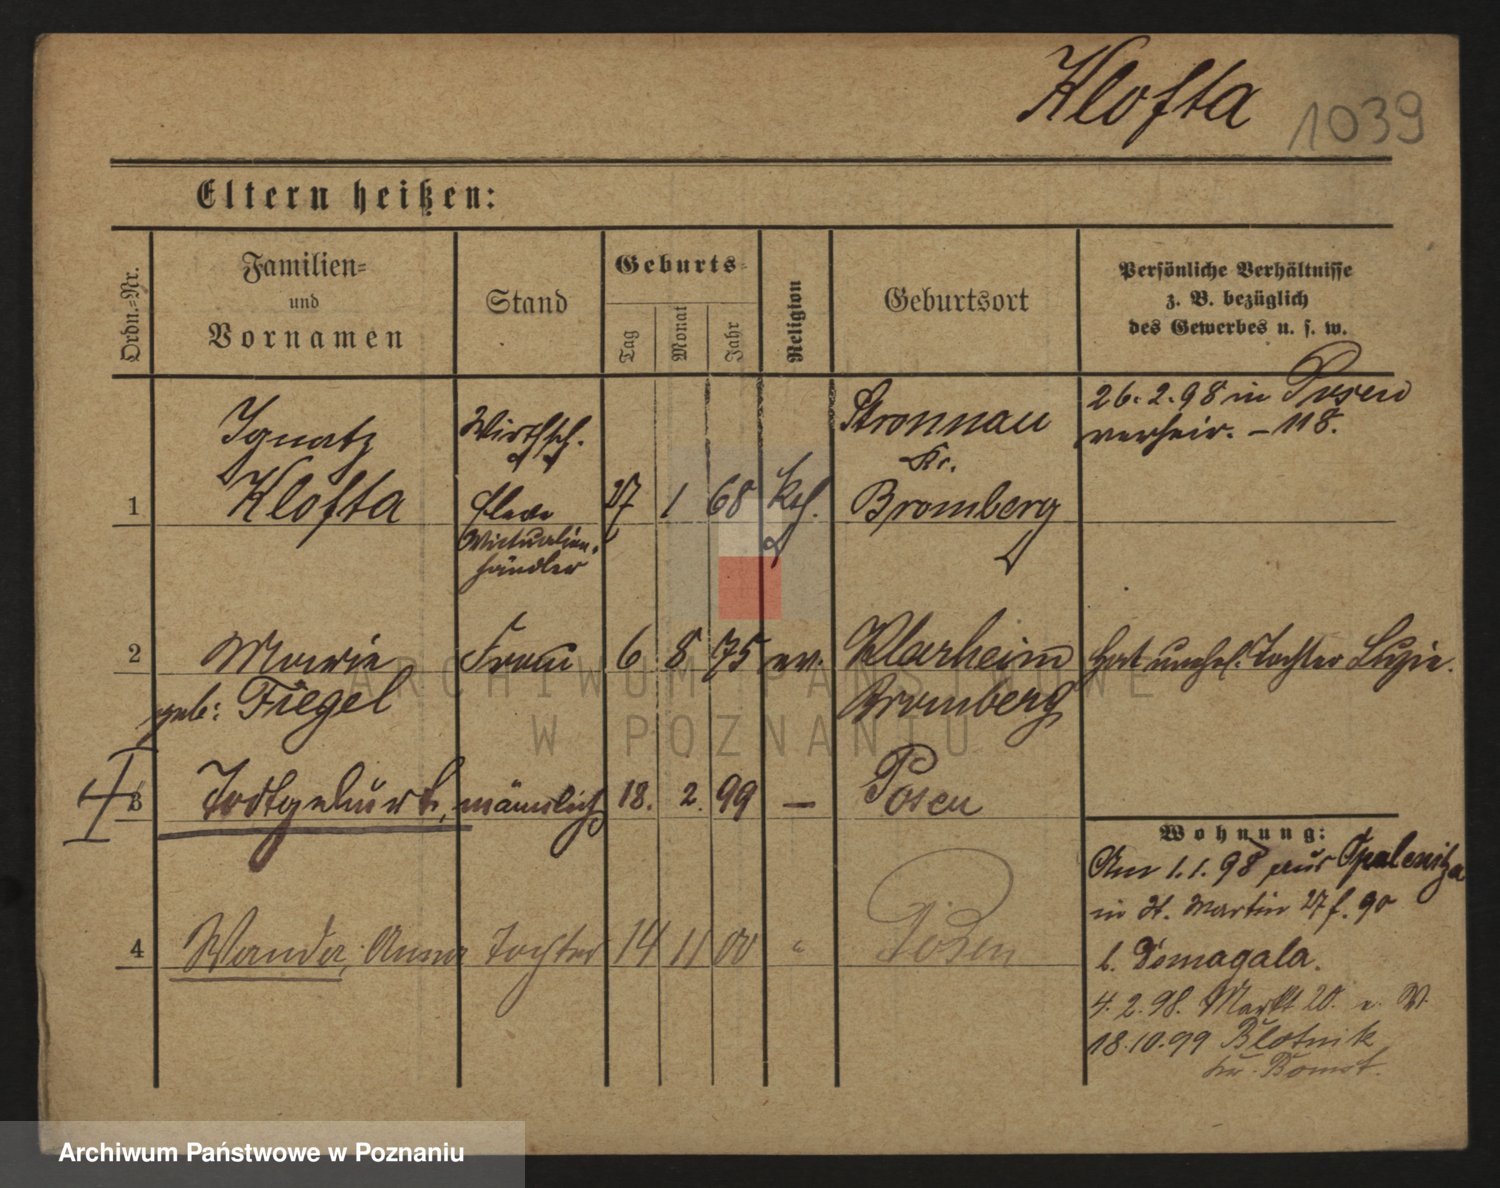 Klofta 1039
Eltern heißen:
Ordn.-Nr.
Familien-
und
Vornamen
Stand
Geburts-
Tag
Monat
Jahr
Religion
Geburtsort
Persönliche Verhältnisse
z. B. bezüglich
des Gewerbes u. s. w.
1
Ignatz
Klofta
Wirthsch.
Eleve
Victualien-
händler
27 1 68 kth.
Stronnau
Kr.
Bromberg
26.2.98 in Posen
verheir. - 118.
2
Marie
geb: Fiegel
Frau
6 8 75 ev.
Klarheim
Bromberg
hat unehel. Tochter
3
Todtgeburt, männlich 18. 2. 99 — Posen
4
Wanda, Anna Tochter 14 11 00 " Posen
Wohnung:
Am 1.1.98 aus Opalenitza
in St. Martin 27 f. 90
b. Domagala.
4.2.98. Markt 20.
18.10.99 Blotnik
Kr. Bomst.
ARCHIWUM PAŃSTWOWE
W POZNANIU
Archiwum Państwowe w Poznaniu